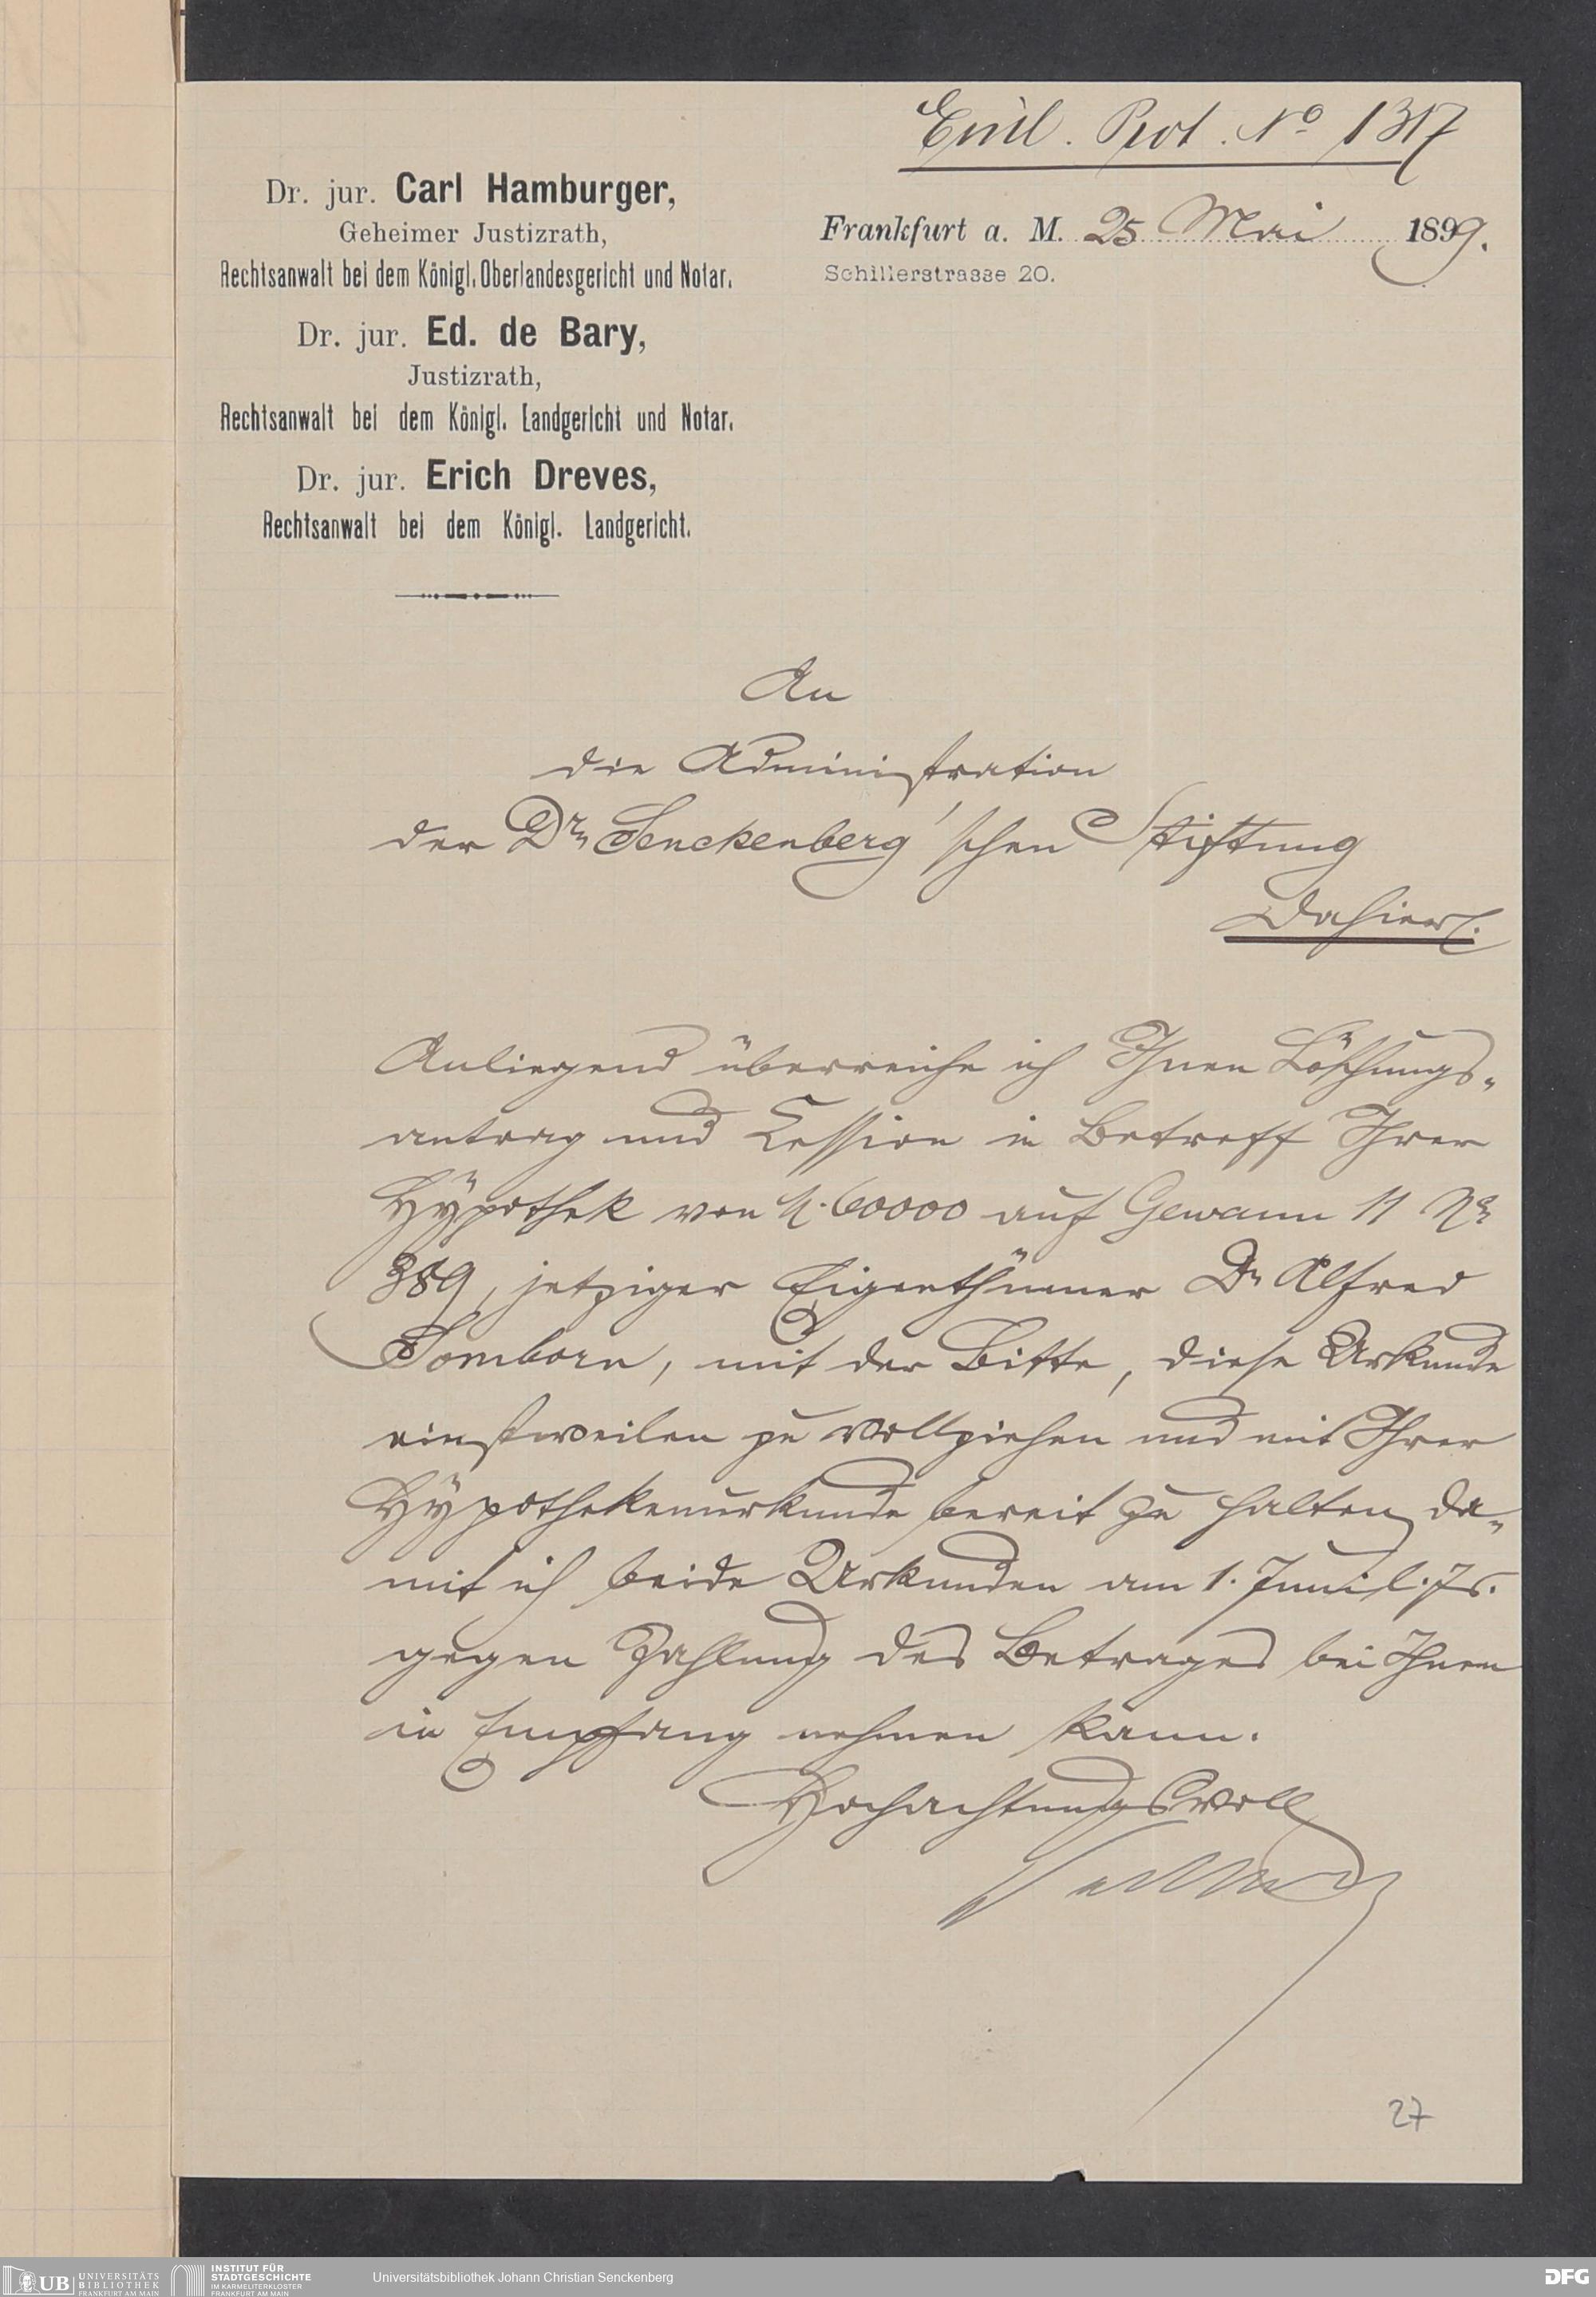 Einl. Prot. No 1317
Dr. jur. Carl Hamburger,
Geheimer Justizrath,
Rechtsanwalt bei dem Königl. Oberlandesgericht und Notar.
Dr. jur. Ed. de Bary,
Justizrath,
Rechtsanwalt bei dem Königl. Landgericht und Notar.
Dr. jur. Erich Dreves,
Rechtsanwalt bei dem Königl. Landgericht.
Frankfurt a. M. 25 Mai 1899.
Schillerstrasse 20.
An
die Administration
der Dr. Senckenberg'schen Stiftung
Dahier.
Anliegend überreiche ich Ihnen Löschungs-
antrag und Cession in Betreff Ihrer
Hypothek von M. 60000 auf Gewann 11 No
389, jetziger Eigenthümer Dr Alfred
Somborn, mit der Bitte, diese Urkunde
einstweilen zu vollziehen und mit Ihrer
Hypothekenurkunde bereit zu halten, da-
mit ich beide Urkunden am 1. Juni l. Js.
gegen Zahlung des Betrages bei Ihnen
in Empfang nehmen kann.
Hochachtungsvoll
27
UB UNIVERSITÄTS
BIBLIOTHEK
FRANKFURT AM MAIN
INSTITUT FÜR
STADTGESCHICHTE
IM KARMELITERKLOSTER
FRANKFURT AM MAIN
Universitätsbibliothek Johann Christian Senckenberg
DFG